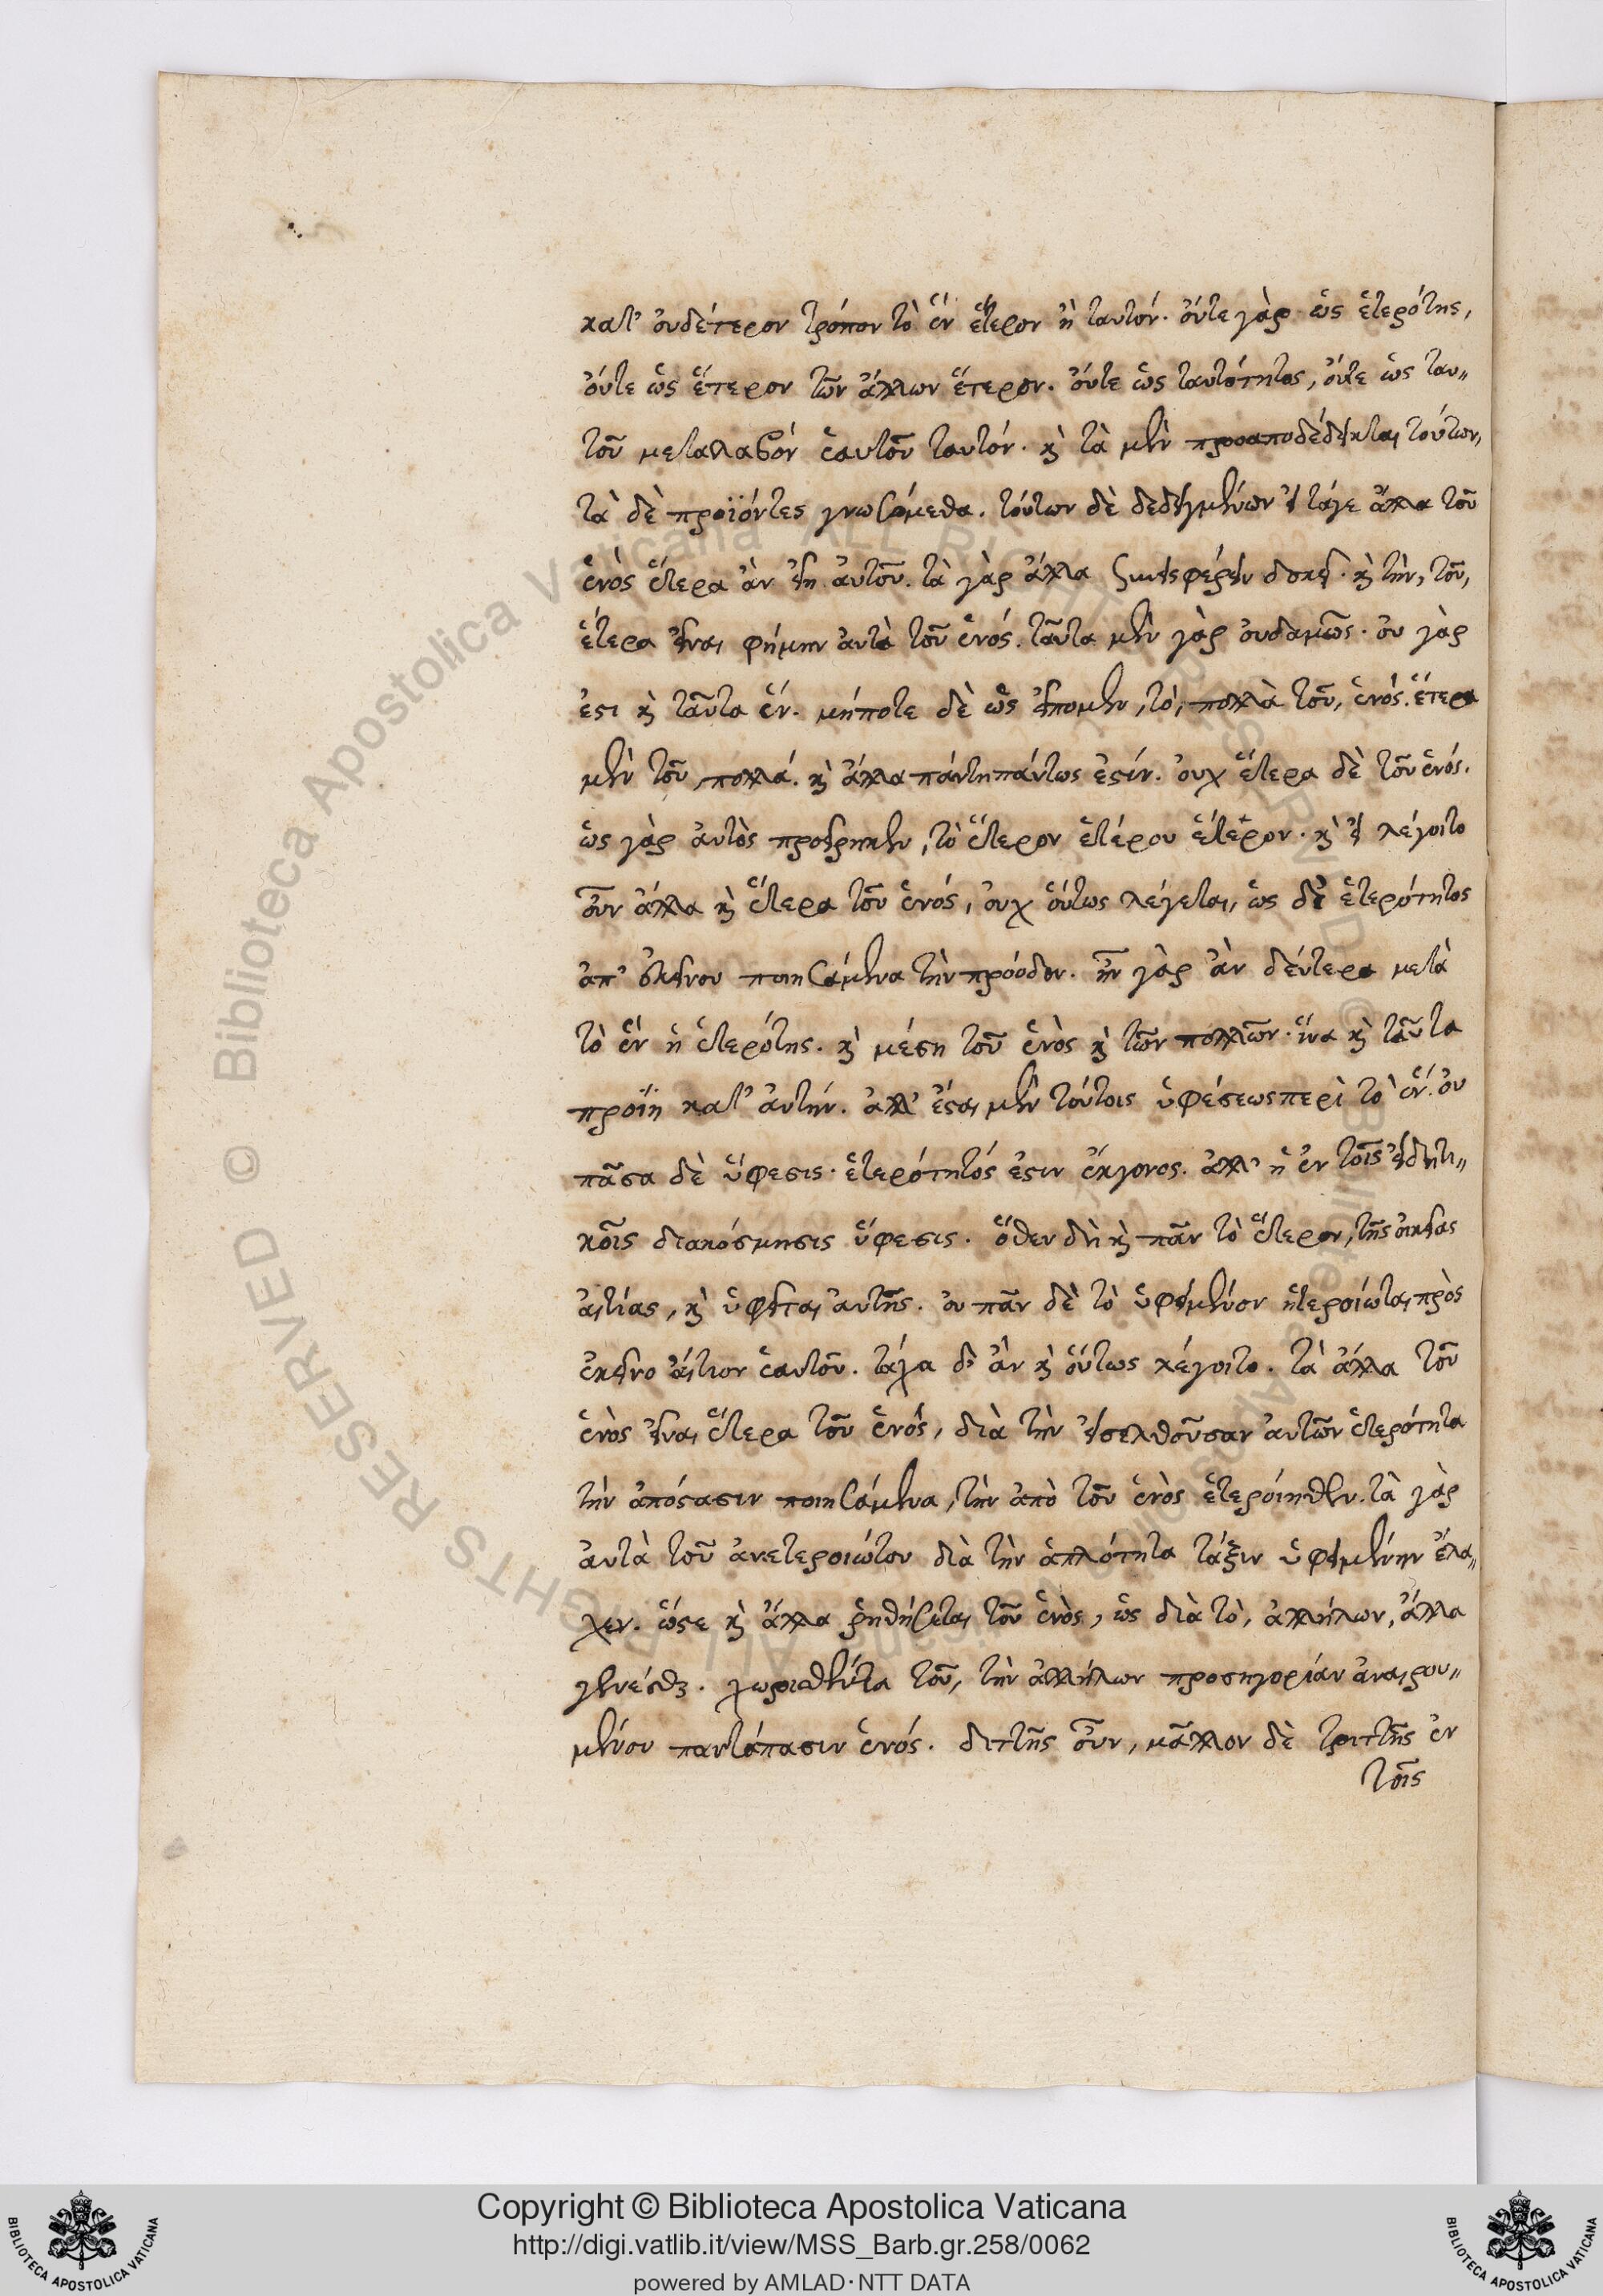 κατ' οὐδέτερον τρόπον τὸ ἓν ἕτερον ἢ ταυτόν. οὔτε γὰρ ὡς ἑτερότης,
οὔτε ὡς ἕτερον τῶν ἄλλων ἕτερον. οὔτε ὡς ταυτότητος, οὔτε ὡς ταυ〃
τοῦ μεταλαβὸν ἑαυτοῦ ταυτόν. καὶ τὰ μὲν προαποδέδεικται τούτων,
τὰ δὲ προϊόντες γνωσόμεθα. τούτων δὲ δεδειγμένων εἰ τάγε ἄλλα τοῦ
ἑνὸς ἕτερα ἂν εἴη αὐτοῦ. τὰ γὰρ ἄλλα συνεισφέρειν δοκεῖ. καὶ τὴν, τοῦ,
ἕτερα εἶναι φήμην αὐτὰ τοῦ ἑνός. ταῦτα μὲν γὰρ οὐδαμῶς. οὐ γὰρ
ἐστι καὶ ταῦτα ἕν. μήποτε δὲ ὡς εἴπομεν, τὸ, πολλὰ τοῦ, ἑνός. ἕτερα
μὲν τοῦ, πολλά. καὶ ἄλλα πάντη πάντως ἐστίν. οὐχ ἕτερα δὲ τοῦ ἑνός.
ὡς γὰρ αὐτὸς προείρηκεν, τὸ ἕτερον ἑτέρου ἕτερον. καὶ εἰ λέγοιτο
οὖν ἄλλα καὶ ἕτερα τοῦ ἑνός, οὐχ οὕτως λέγεται, ὡς δι' ἑτερότητος
ἀπ' ἐκείνου ποιησάμενα τὴν πρόοδον. ἦν γὰρ ἂν δεύτερα μετὰ
τὸ ἓν ἡ ἑτερότης. καὶ μέση τοῦ ἑνὸς καὶ τῶν πολλῶν. ἵνα καὶ ταῦτα
προΐη κατ' αὐτήν. ἀλλ' ἔσται μὲν τούτοις ὑφέσεως περὶ τὸ ἕν. οὐ
πᾶσα δὲ ὕφεσις. ἑτερότητός ἐστιν ἔκγονος. ἀλλ' ἡ ἐν τοῖς εἰδητι〃
κοῖς διακόσμησις ὕφεσις. ὅθεν δὴ καὶ πᾶν τὸ ἕτερον, τῆς οἰκείας
αἰτίας, καὶ ὑφεῖται αὐτῆς. οὐ πᾶν δὲ τὸ ὑφειμένον ἡτεροίωται πρὸς
ἐκεῖνο αἴτιον ἑαυτοῦ. τάχα δ' ἂν καὶ οὕτως λέγοιτο. τὰ ἄλλα τοῦ
ἑνὸς εἶναι ἕτερα τοῦ ἑνός, διὰ τὴν εἰσελθοῦσαν αὐτῶν ἑτερότητα
τὴν ἀπόστασιν ποιησάμενα, τὴν ἀπὸ τοῦ ἑνὸς ἑτεροίηθεν. τὰ γὰρ
αὐτὰ τοῦ ἀνετεροιώτου διὰ τὴν ἁπλότητα τάξιν ὑφειμένην ἔλα〃
χεν. ὥστε καὶ ἄλλα ῥηθήσεται τοῦ ἑνὸς, ὡς διὰ τὸ, ἀλλήλων, ἄλλα
γενέσθαι. χωρισθέντα τοῦ, τὴν ἀλλήλων προσηγορίαν ἀναιρου〃
μένου παντάπασιν ἑνός. διττῆς οὖν, μᾶλλον δὲ τριττῆς ἐν
τοῖς
Copyright © Biblioteca Apostolica Vaticana
http://digi.vatlib.it/view/MSS_Barb.gr.258/0062
powered by AMLAD·NTT DATA